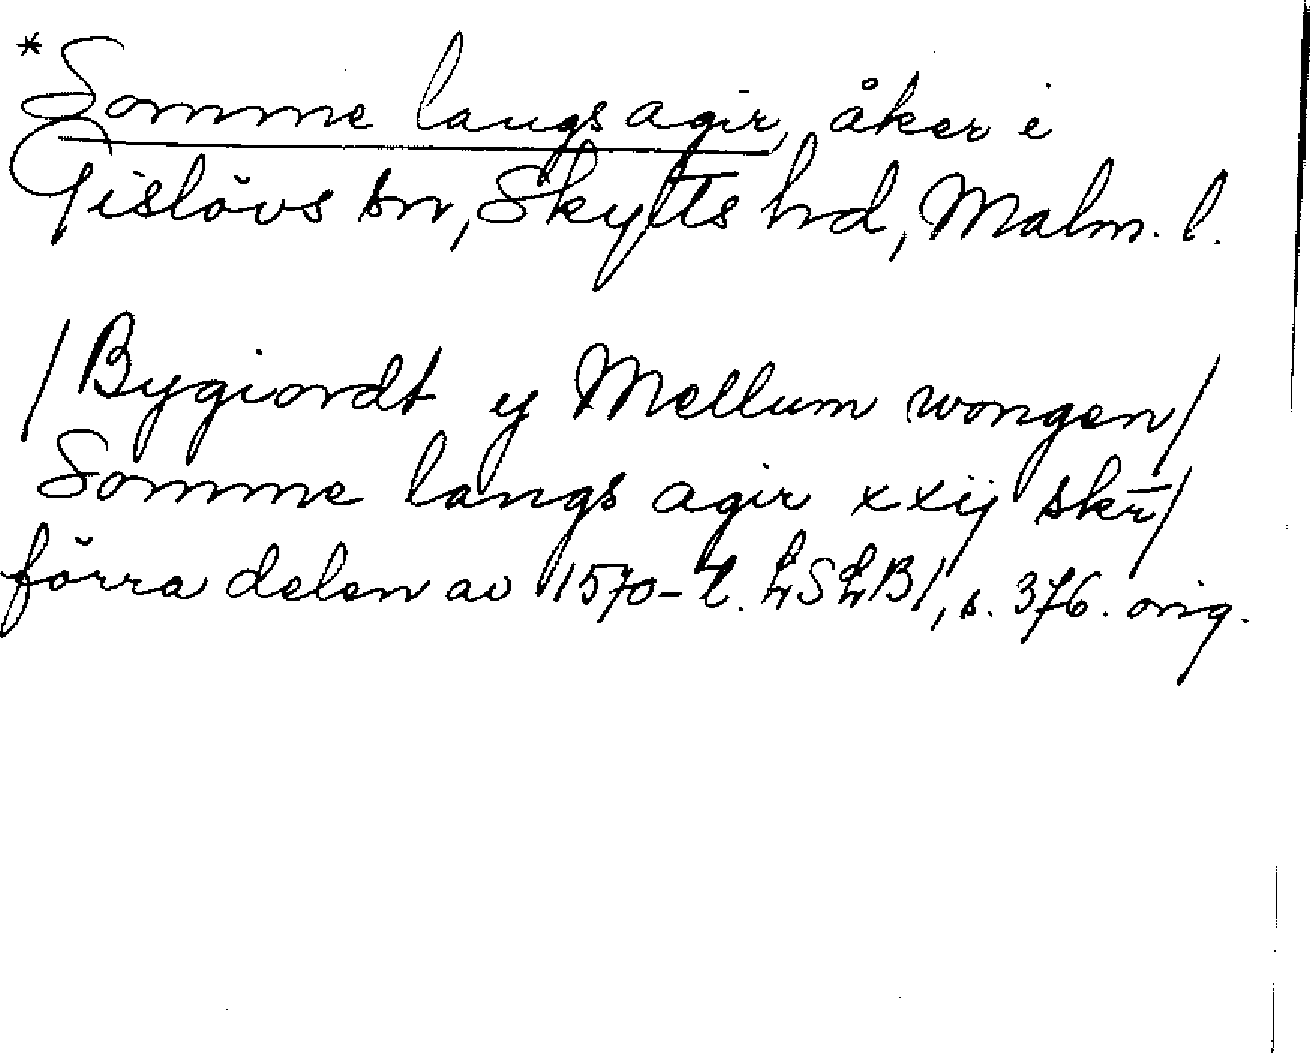 *Somme langs agir, åker i
Gislövs sn, Skytts hd, Malm. l.
/Bygiordt y Mellum wongen/
Somme langs agir xxij skr̄/
förra delen av 1570-t. LSLB1, s. 376. orig.